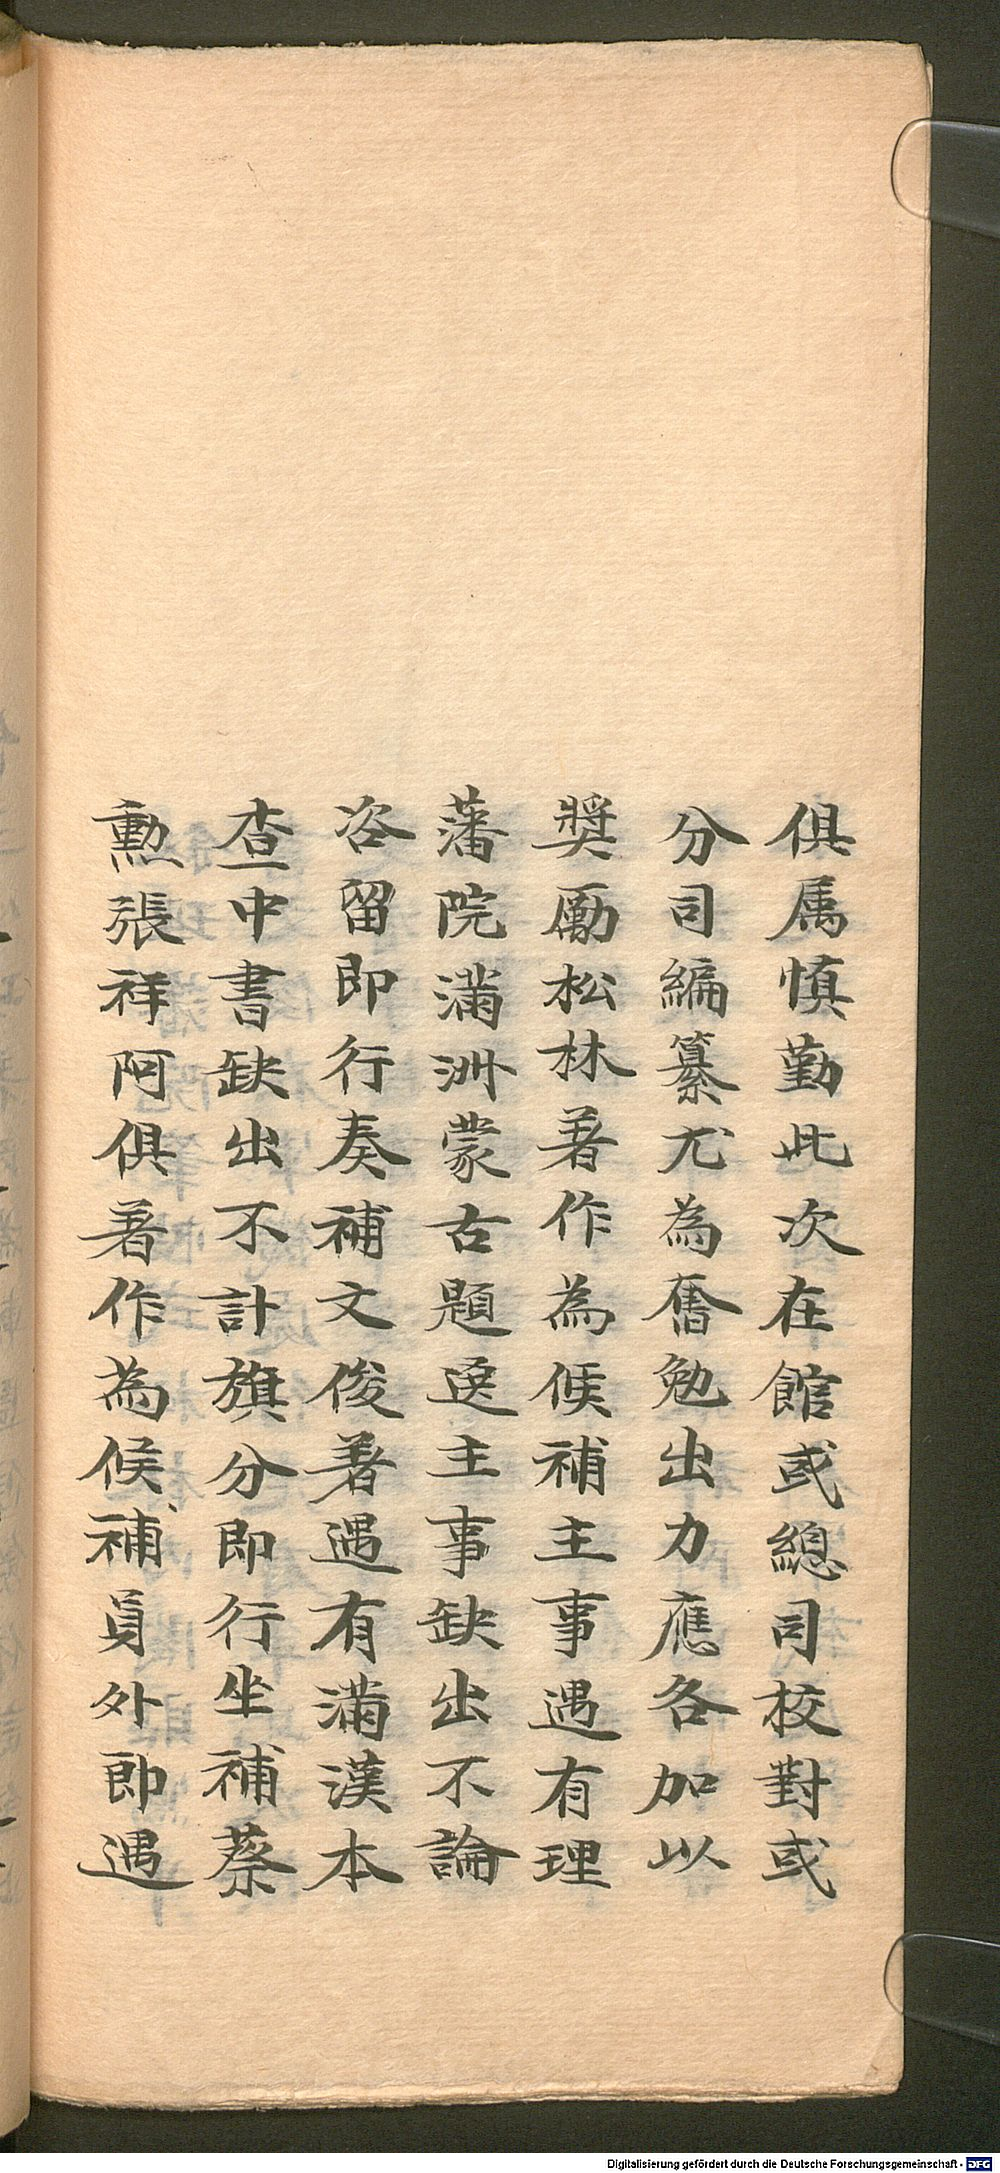 俱属慎勤此次在館或總司校對或
分司編纂尤為奮勉出力應各加以
奬勵松林著作為候補主事遇有理
藩院滿洲蒙古題選主事缺出不論
咨留即行奏補文俊著遇有滿漢本
查中書缺出不計旗分即行坐補蔡
勳張祥阿俱著作為候補員外郎遇
Digitalisierung gefördert durch die Deutsche Forschungsgemeinschaft - DFG